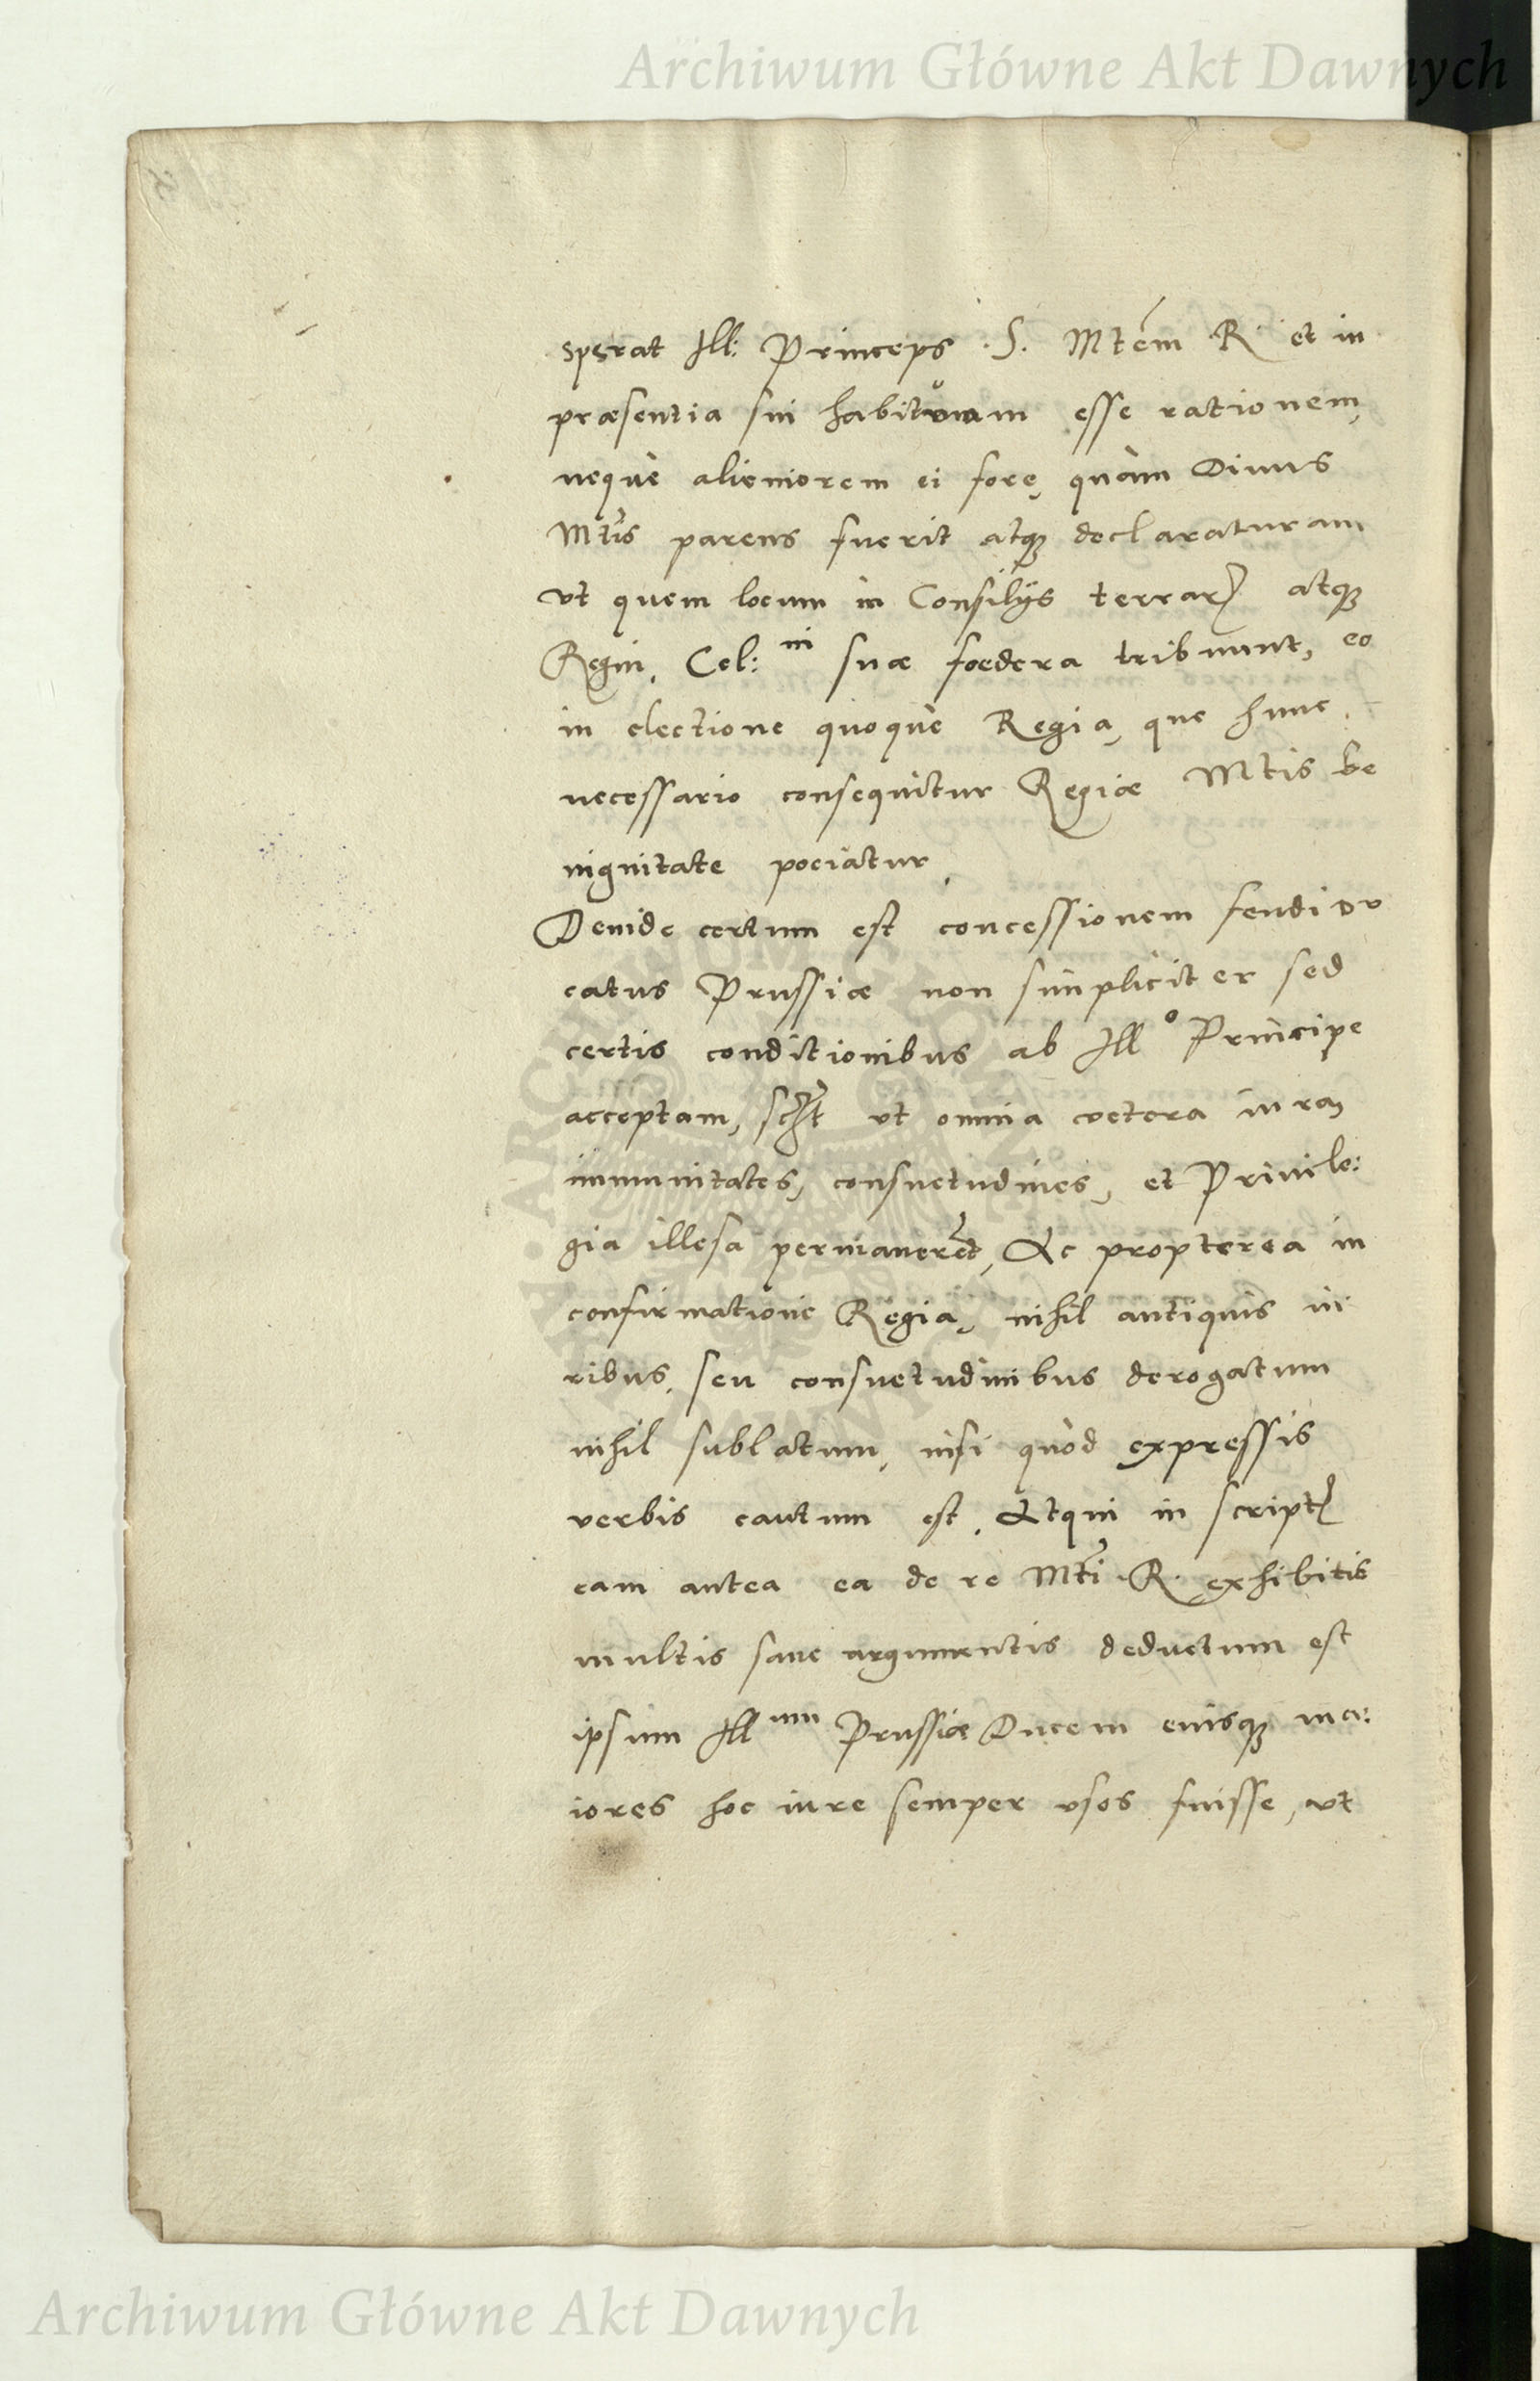 Archiwum Główne Akt Dawnych
sperat Ill: Princeps .S. Mtem R. et in
praesentia sui habituram esse rationem,
neque alieniorem ei fore, quàm Diuus
Mtis parens fuerit atq; declaraturam
vt quem locum in Consilijs terrar. atq;
Regni, Cel: ni suae foedera tribuunt, eo
in electione quoque Regia, que hunc
necessario consequitur Regiae Mtis be
nignitate pociatur.
Deinde certum est concessionem feudi du
catus Prussiae non simpliciter sed
certis conditionibus ab Ill o Principe
acceptam, sclt vt omnia vetera iura,
immunitates, consuetudines, et Priuile:
gia illesa permanerēt, Ac propterea in
confirmatione Regia, nihil antiquis iu
ribus, seu consuetudinibus derogatum
nihil sublatum, nisi quod expressis
verbis cautum est. Atqui in script.
eam antea ea de re Mti .R. exhibitis
multis sane argumentis deductum est
ipsum Ill um Prussiae Ducem eiusq; ma:
iores hoc iure semper vsos fuisse, vt
Archiwum Główne Akt Dawnych